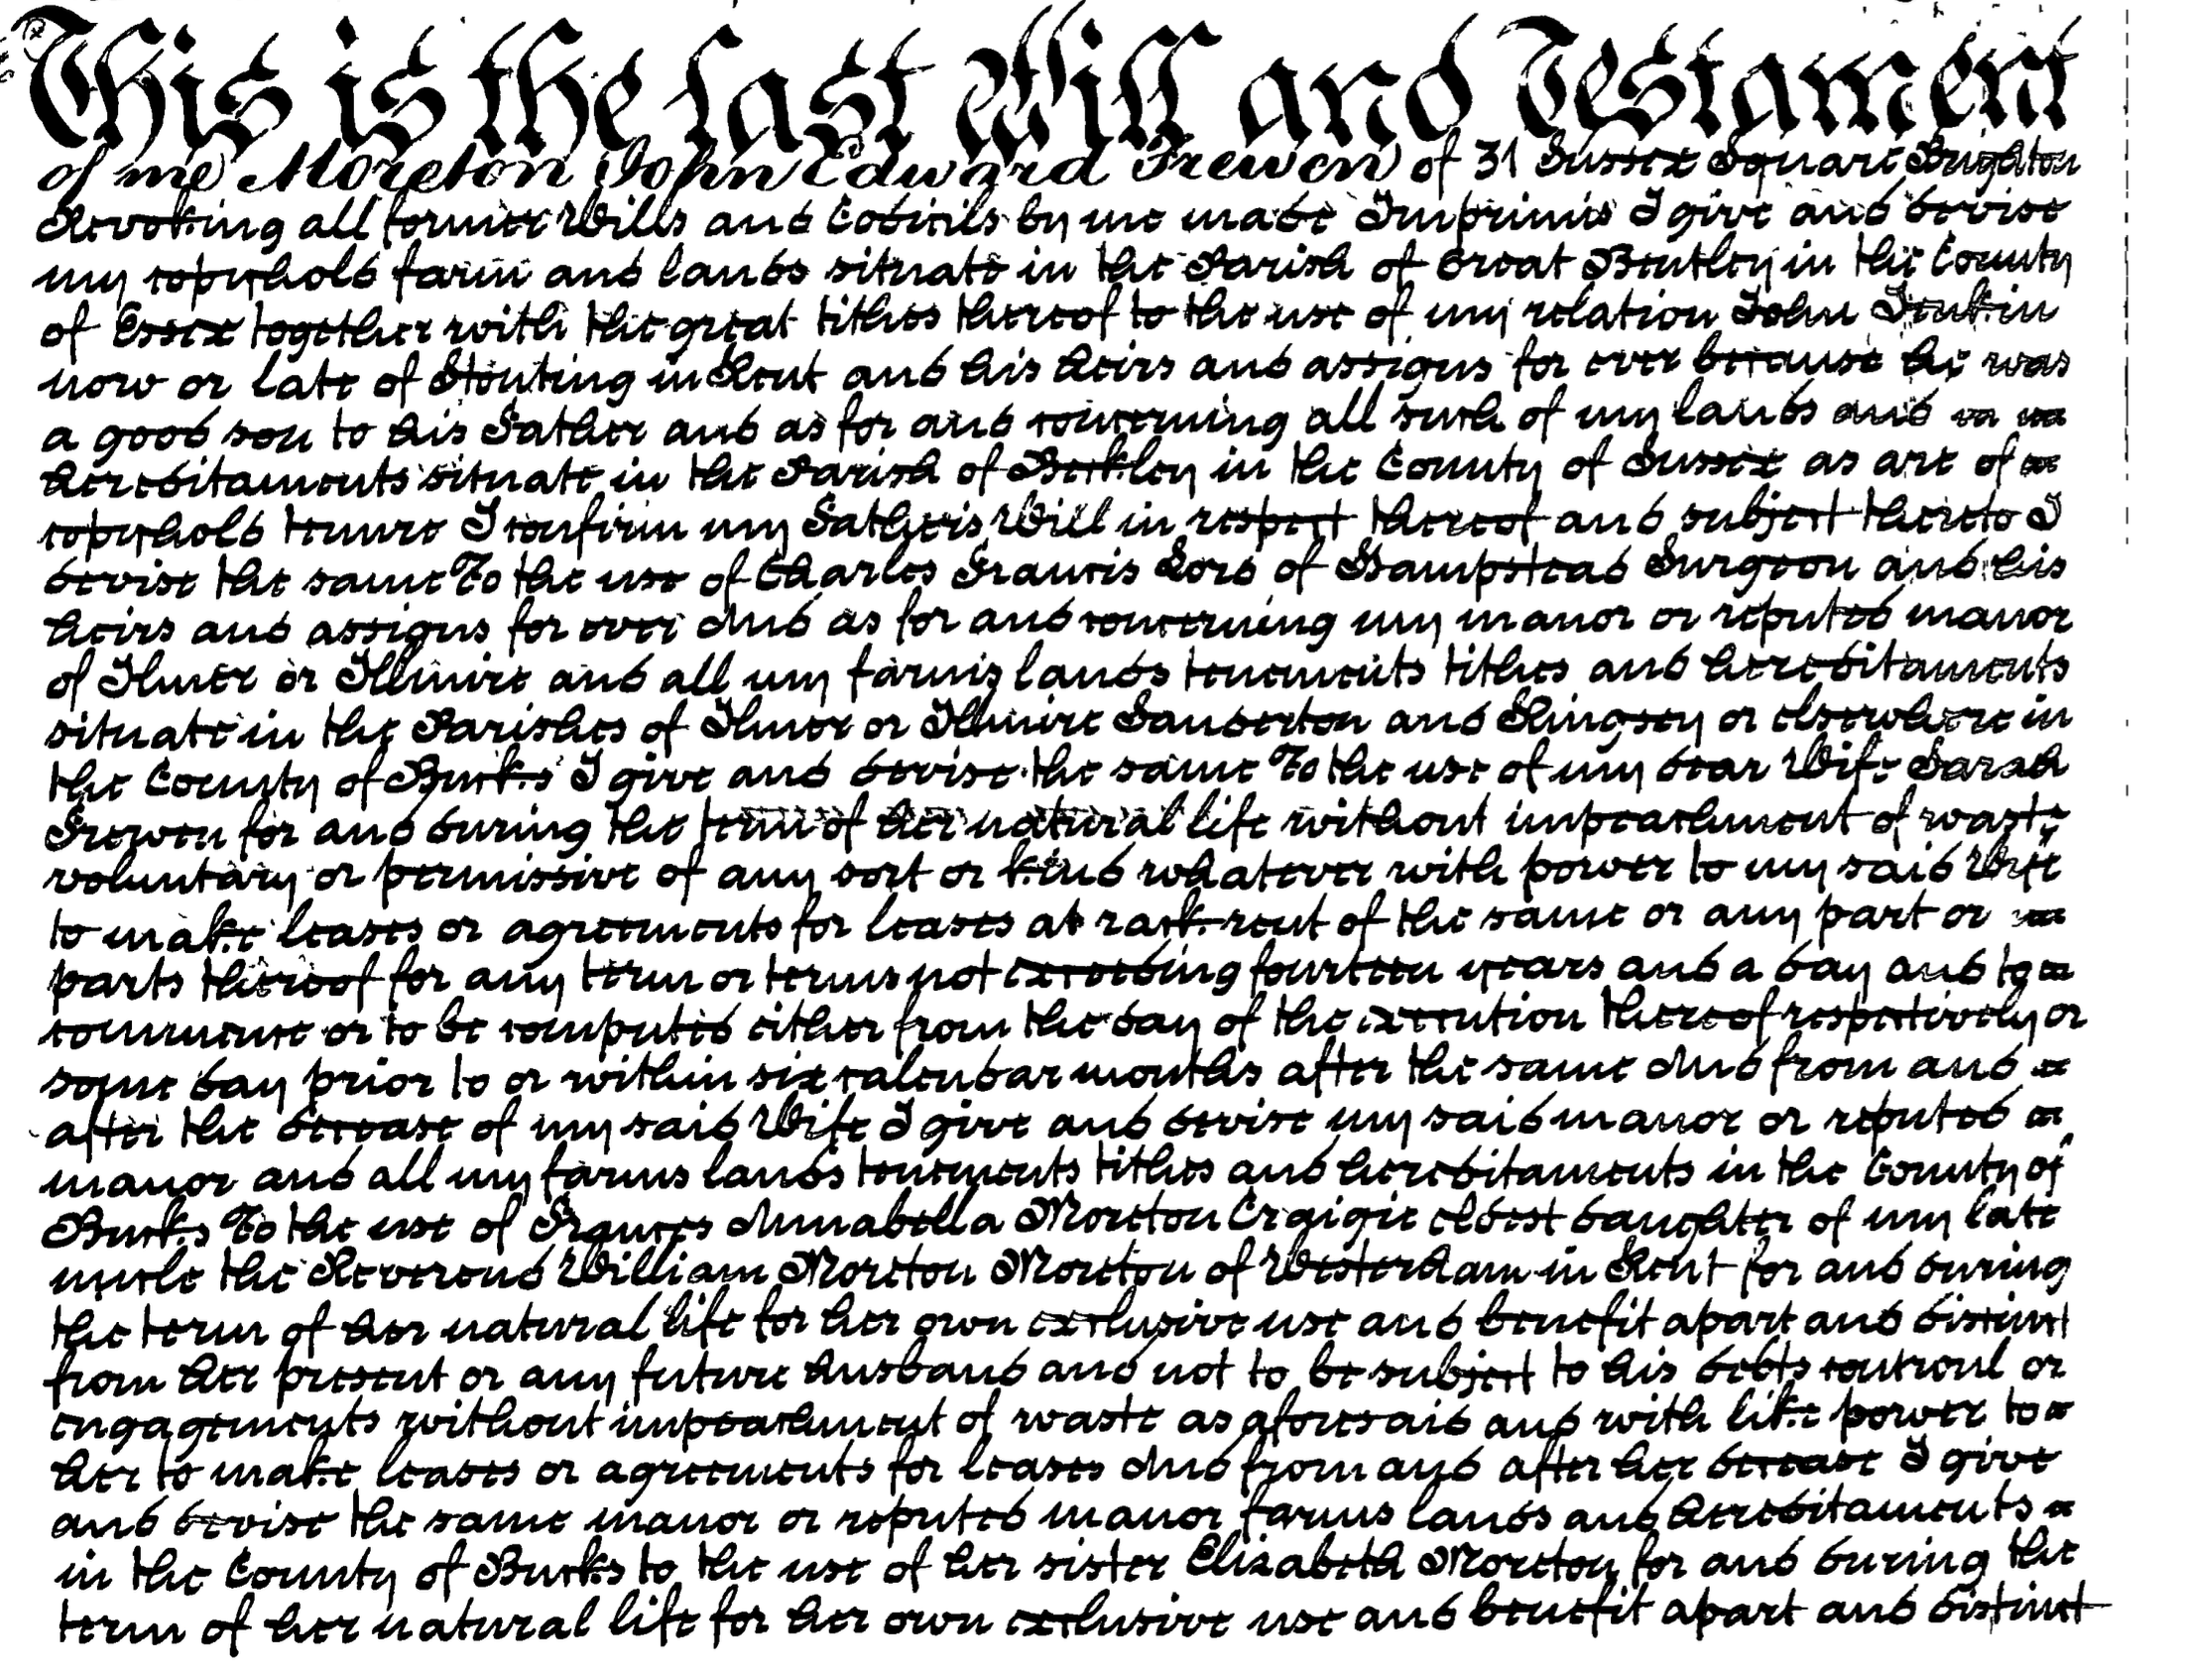 This is the last Will and Testament
of me Moreton John Edward Frewen of 31 Sussex Square Brighton
Revoking all former Wills and Codicils by me made Imprimis I give and devise
my copyhold farm and lands situate in the Parish of Great Bentley in the County
of Essex together with the great tithes thereof to the use of my relation John Jenkin
now or late of Stouting in Kent and his heirs and assigns for ever because he was
a good son to his Father and as for and concerning all such of my lands and
hereditaments situate in the Parish of Beckley in the County of Sussex as are of
copyhold tenure I confirm my Father's Will in respect thereof and subject thereto I
devise the same To the use of Charles Francis Lord of Hampstead Surgeon and his
heirs and assigns for ever And as for and concerning my manor or reputed manor
of Ilmer or Illmire and all my farms lands tenements tithes and hereditaments
situate in the Parishes of Ilmer or Illmire Saunderton and Kingsey or elsewhere in
the County of Bucks I give and devise the same To the use of my dear Wife Sarah
Frewen for and during the term of her natural life without impeachment of waste
voluntary or permissive of any sort or kind whatever with power to my said Wife
to make leases or agreements for leases at rack rent of the same or any part or
parts thereof for any term or terms not exceeding fourteen years and a day and to
commence or to be computed either from the day of the execution thereof respectively or
some day prior to or within six calendar months after the same And from and
after the decease of my said Wife I give and devise my said manor or reputed
manor and all my farms lands tenements tithes and hereditaments in the County of
Bucks To the use of Frances Annabella Moreton Craigie eldest daughter of my late
uncle the Reverend William Moreton Moreton of Westerham in Kent for and during
the term of her natural life for her own exclusive use and benefit apart and distinct
from her present or any future husband and not to be subject to his debts controul or
engagements without impeachment of waste as aforesaid and with like power to
her to make leases or agreements for leases And from and after her decease I give
and devise the same manor or reputed manor farms lands and hereditaments
in the County of Bucks to the use of her sister Elizabeth Moreton for and during the
term of her natural life for her own exclusive use and benefit apart and distinct